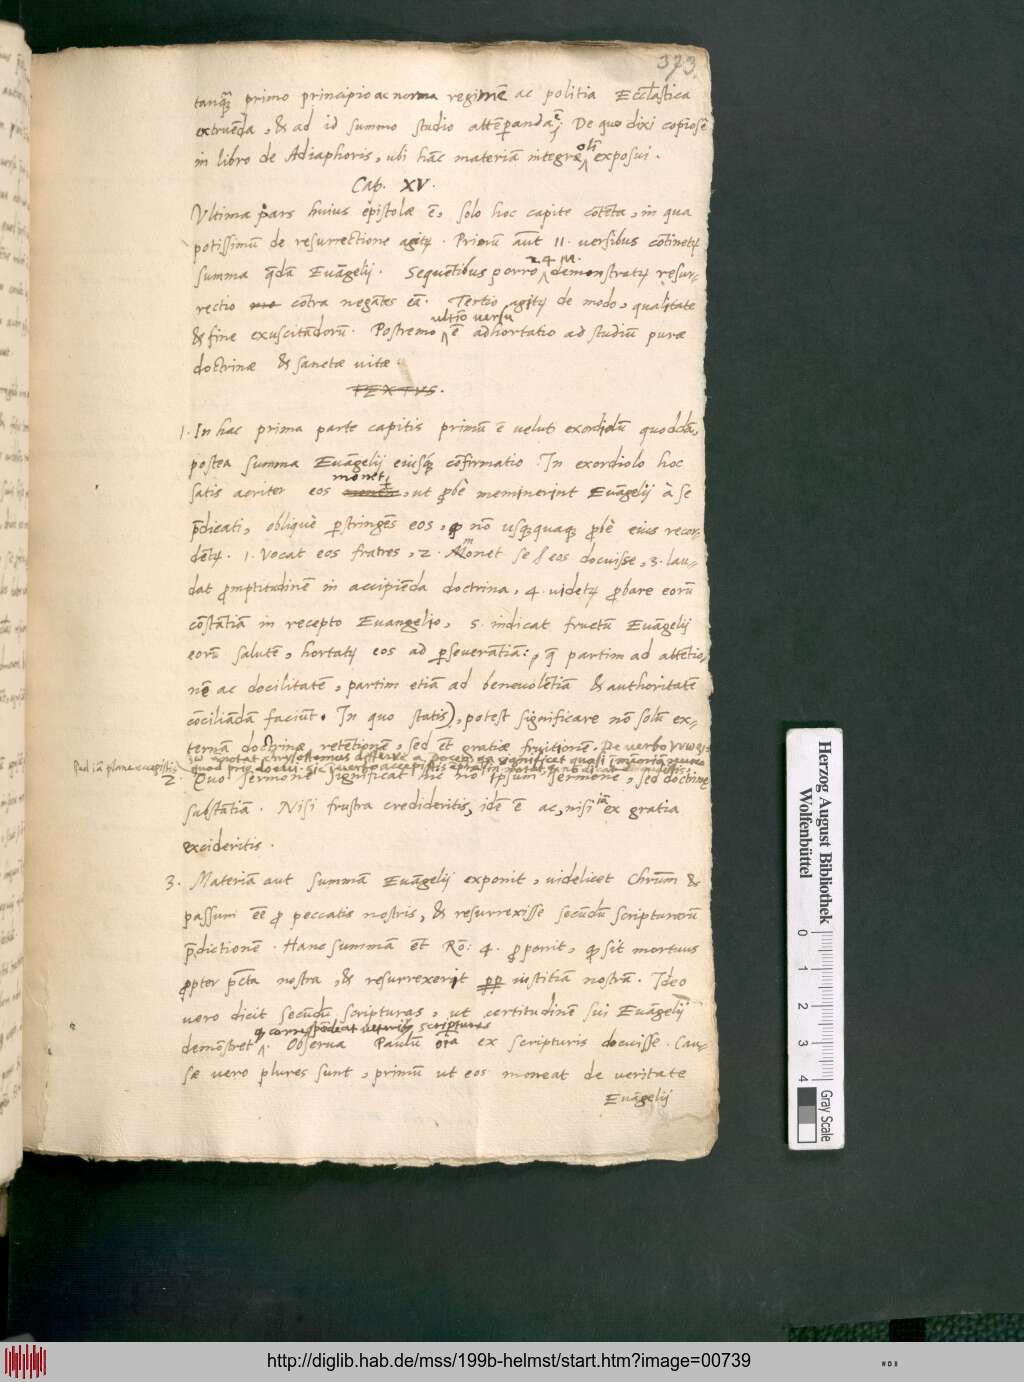 373
tanq̃ primo principio ac norma regimē ac politia Eccl̃astica
extruēda, & ad id summo studio attēperanda ē; De quo dixi copiosē
in libro de Adiaphoris, ubi hāc materiā integrā olī exposui.
Cap. XV.
Vltima pars huius epistolæ ē, solo hoc capite cōtēta, in qua
potissimū de resurrectione agitʒ. Priorū aūt 11. versibus cōtinetʒ
summa q̄dā Euāgelij. Sequētibus porro 24 demonstratʒ resur-
rectio cōtra negātes eā. Tertio agitʒ de modo, qualitate
& fine exuscitādorū. Postremo ultīo versu ē adhortatio ad studiū puræ
doctrinæ & sanctæ vitæ.
TEXTVS.
1. In hac prima parte capitis primū ē velut exordiolū quoddā,
postea summa Euāgelij eiusq̃ cōfirmatio. In exordiolo hoc
satis acriter eos monet, ut p̄bè meminerint Euāgelij à se
p̄dicati, obliquè p̄stringēs eos, q̃ nō usq̃quaq̃ p̄bè eius recor-
dētʒ. 1. Vocat eos fratres, 2. Monet se eos docuisse, 3. lau-
dat p̄mptitudinē in accipiēda doctrina, 4. videtʒ p̄bare eorū
cōstātiā in recepto Euangelio, 5. indicat fructū Euāgelij
eorū salutē, hortatʒ eos ad p̄severātiā: q̄ partim ad attētio-
nē ac docilitatē, partim etiā ad benevolētiā & authoritatē
cōciliādā faciūt. In quo statis), potest significare nō solū ex-
ternā doctrinæ retētionē, sed ēt gratiæ fruitionē. De verbo
notat Chrysostomus
2. Quo sermone significat hic nō ipsum sermonē, sed doctrinę
substātiā. Nisi frustra credideritis, idē ē ac, nisi iā ex gratia
excideritis.
3. Materiā aut summā Euāgelij exponit, videlicet Chrūm &
passum ēe p̄ peccatis nostris, & resurrexisse secūdū scripturarū
p̄dictionē. Hanc summā ēt Rō: 4. p̄ponit, q̃ sit mortuus
p̄pter p̄cta nostra, & resurrexerit pp̄ iustitiā nostrā. Ideo
vero dicit secūdū scripturas, ut certitudinē sui Euāgelij
demōstret q̃ correspōdeat scripturas. Observa Paulū oīa ex scripturis docuisse. Cau-
sæ vero plures sunt, primū ut eos moneat de veritate
Euāgelij
Herzog August Bibliothek
Wolfenbüttel
0 1 2 3 4
Gray Scale
http://diglib.hab.de/mss/199b-helmst/start.htm?image=00739